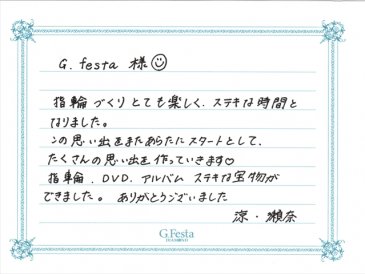 G. festa 様☺
指輪づくりとても楽しく、ステキな時間と
なりました。
この思い出をまたあらたにスタートとして、
たくさんの思い出を作っていきます♡
指輪、DVD、アルバム ステキな宝物が
できました。ありがとうございました
涼・瀬奈
G.Festa
DIAMOND